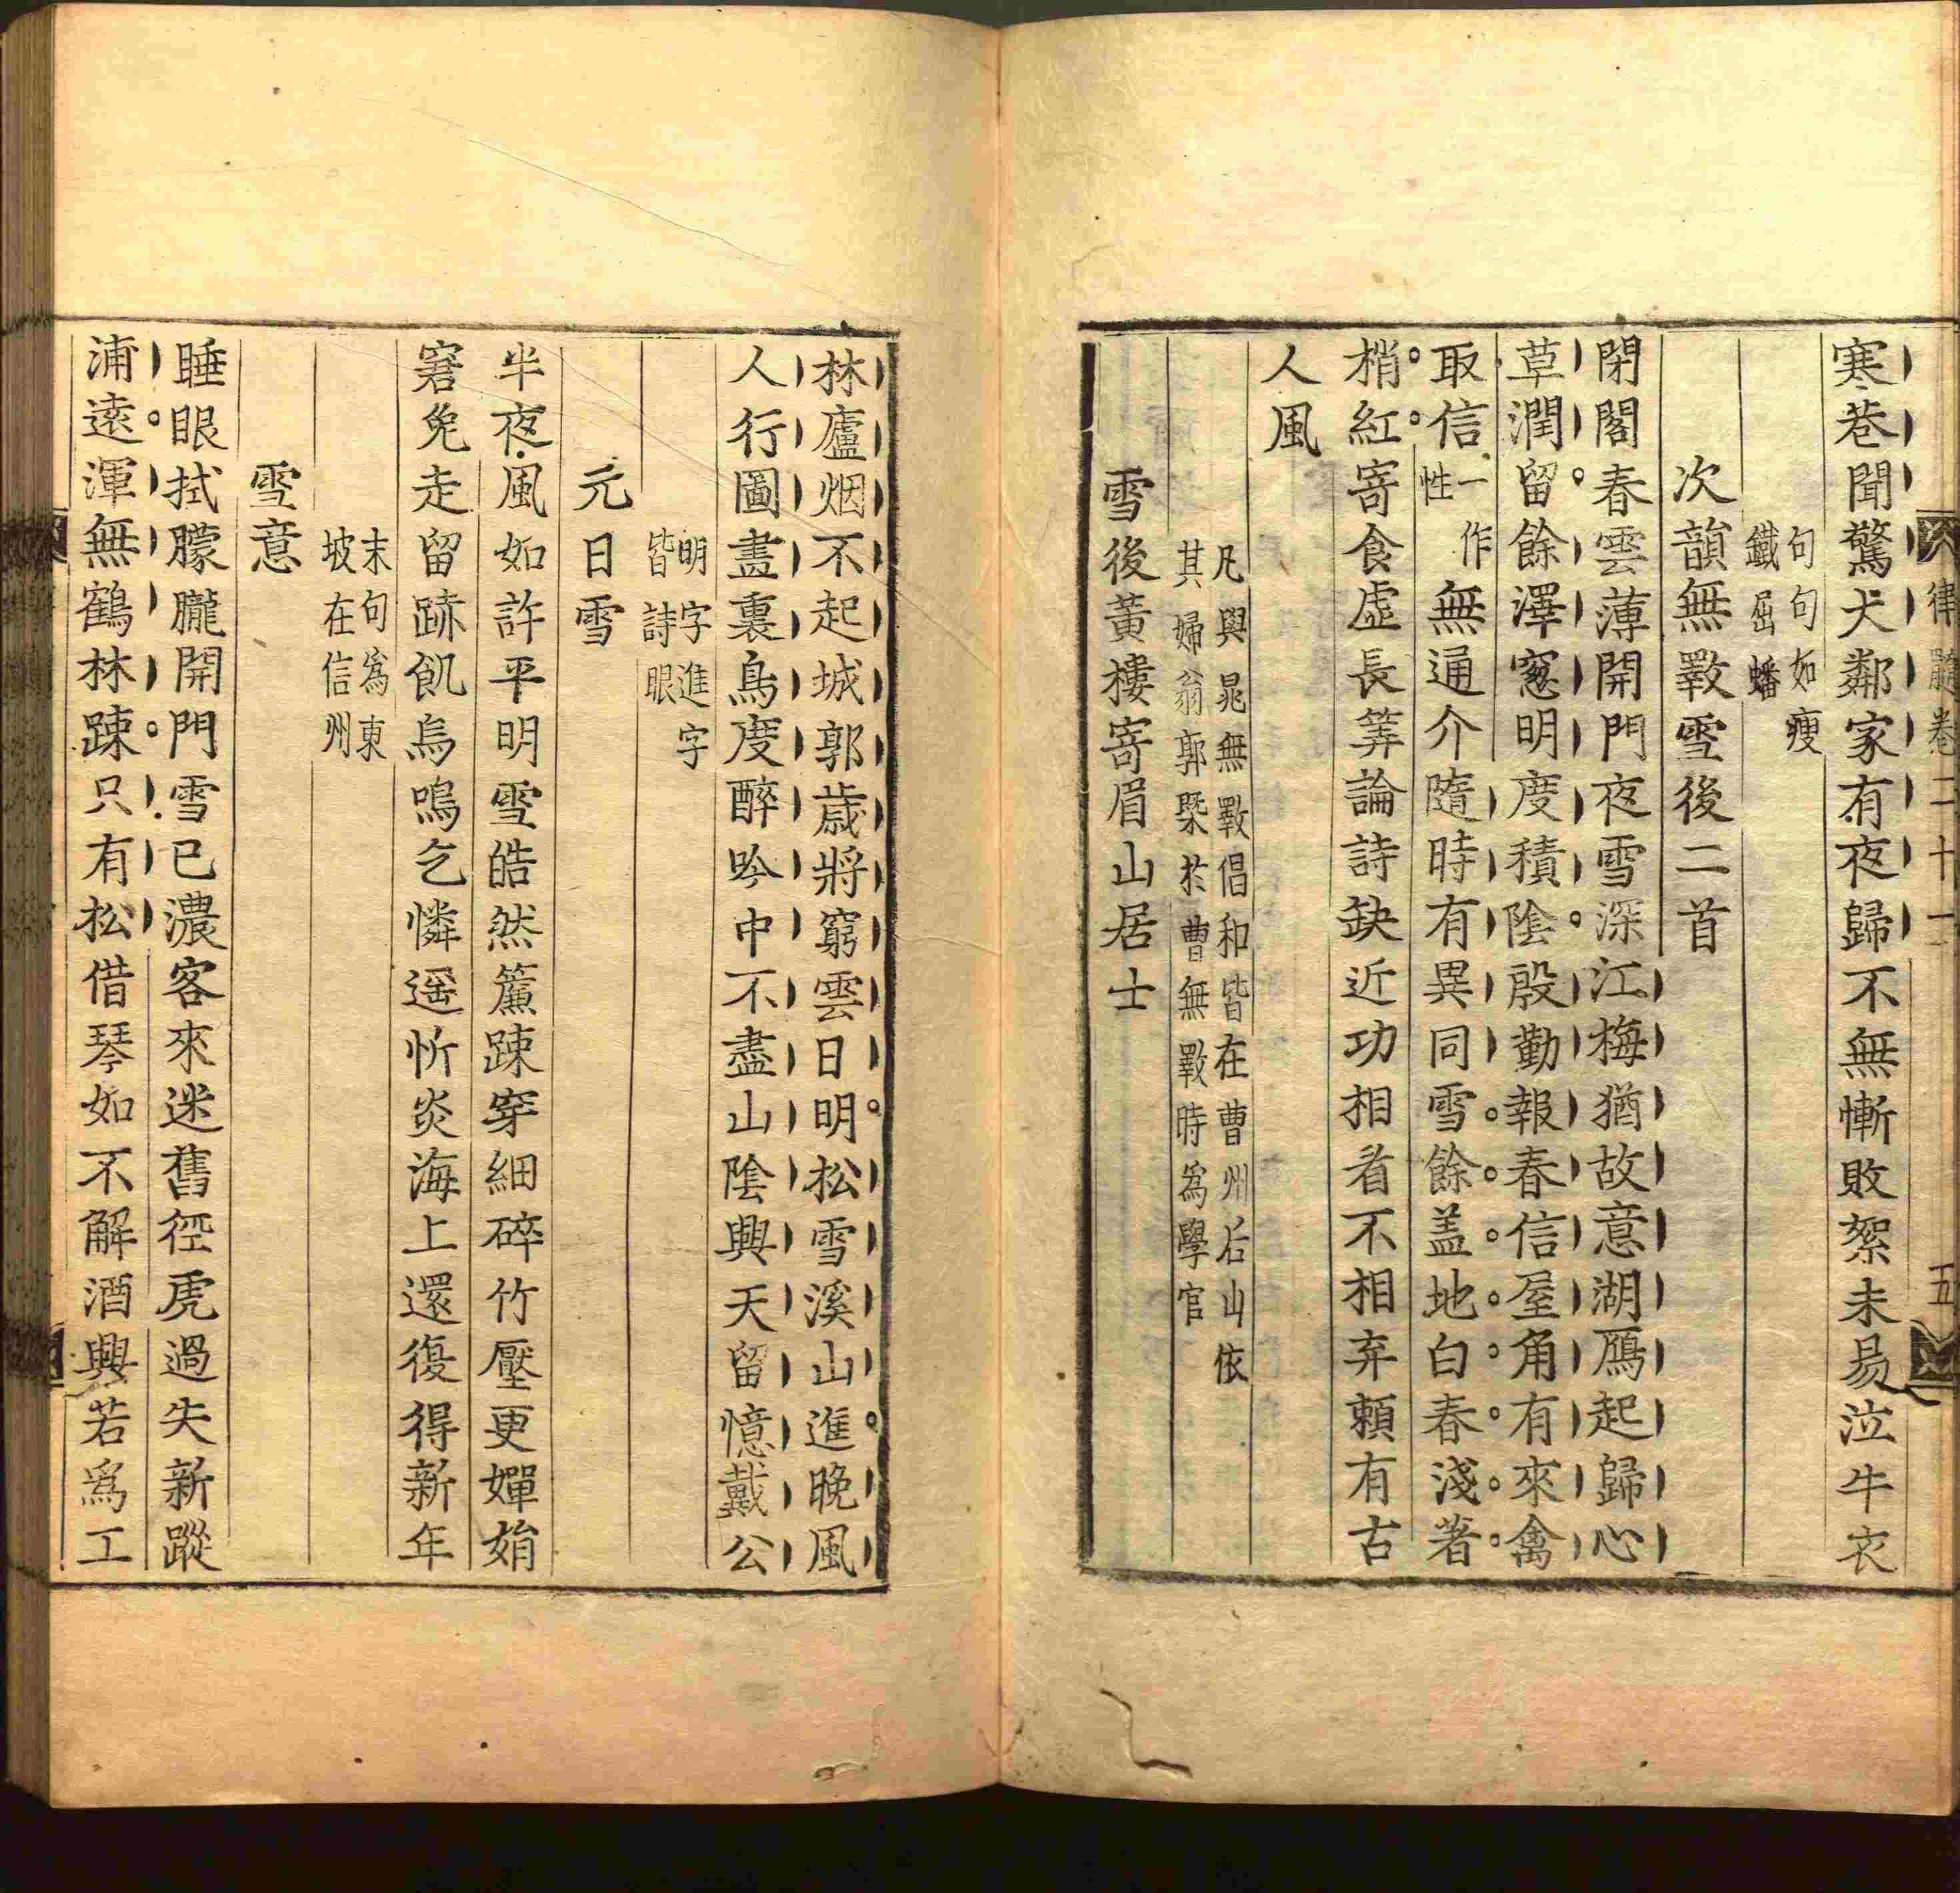 律髓卷二十一
五
寒巷聞驚犬鄰家有夜歸不無慚敗絮未易泣牛衣
句句如瘦
鐵屈蟠
次韻無斁雪後二首
閉閣春雲薄開門夜雪深江梅猶故意湖鴈起歸心
草潤留餘澤窻明度積陰殷勤報春信屋角有來禽
取信一作性無通介隨時有異同雪餘盖地白春淺著
梢紅寄食虛長筭論詩缺近功相看不相弃頼有古
人風
凡與晁無斁倡和皆在曹州后山依
其婦翁郭槩於曹無斁時爲學官
雪後黃樓寄眉山居士
林廬烟不起城郭歲將窮雲日明松雪溪山進晚風
人行圖畫裏鳥度醉吟中不盡山陰興天留憶戴公
明字進字
皆詩眼
元日雪
半夜風如許平明雪皓然簾踈穿細碎竹壓更嬋娟
窘兔走留跡飢烏鳴乞憐遥忻炎海上還復得新年
末句爲東
坡在信州
雪意
睡眼拭朦朧開門雪已濃客來迷舊徑虎過失新蹤
浦遠渾無鶴林踈只有松借琴如不解酒興若爲工